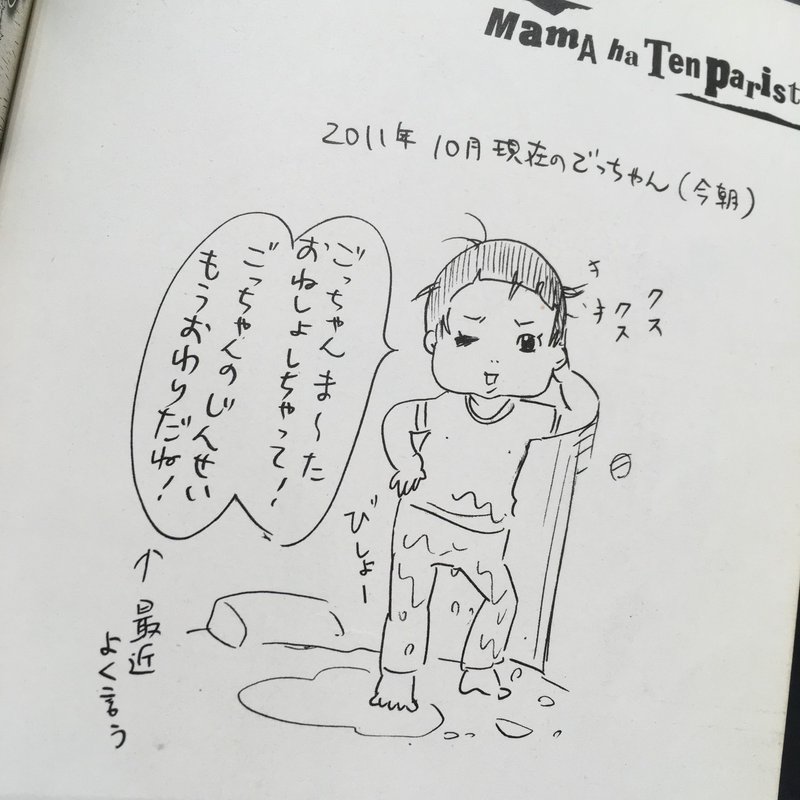 MamA ha TenParist
2011年 10月 現在のごっちゃん(今朝)
ごっちゃん ま〜た
おねしょしちゃって!
ごっちゃんのじんせい
もうおわりだね!
クス
クス
びしょー
↑ 最近
よく言う